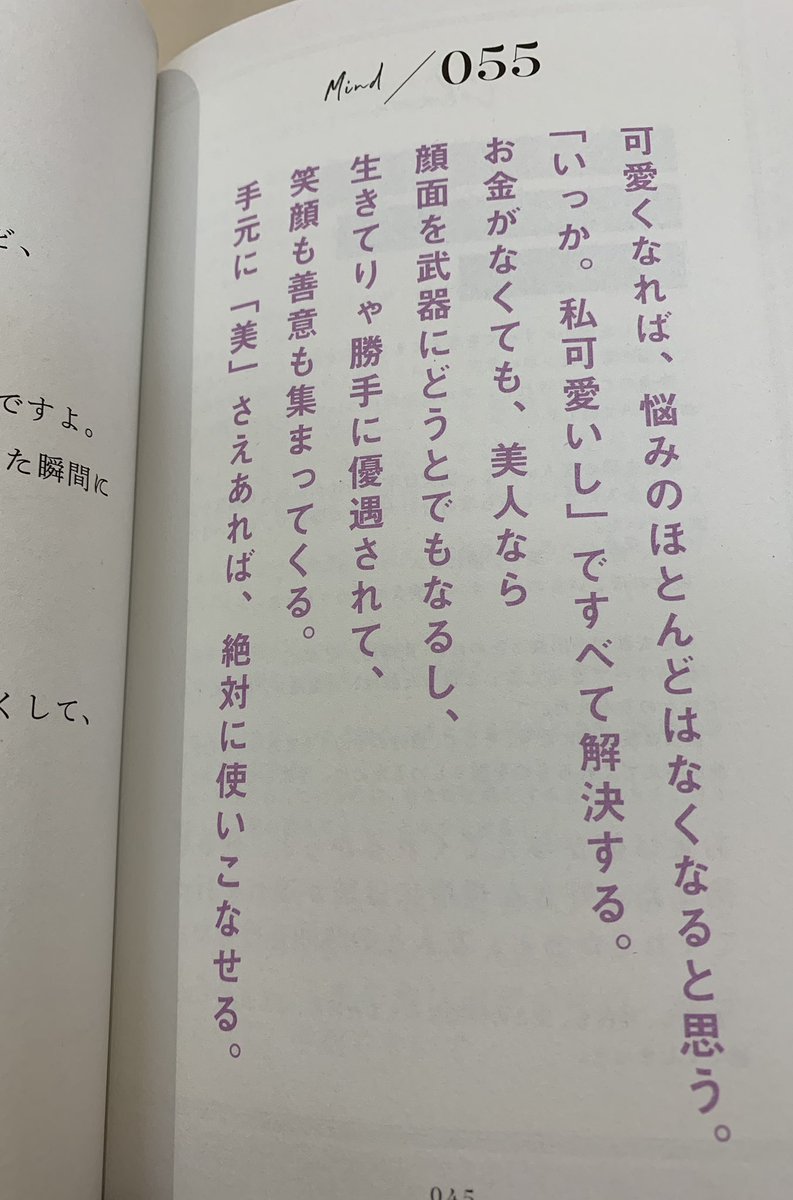 Mind / 055
可愛くなれば、悩みのほとんどはなくなると思う。
「いっか。私可愛いし」ですべて解決する。
お金がなくても、美人なら
顔面を武器にどうとでもなるし、
生きてりゃ勝手に優遇されて、
笑顔も善意も集まってくる。
手元に「美」さえあれば、絶対に使いこなせる。
045
ど、
ですよ。
た瞬間に
くして、